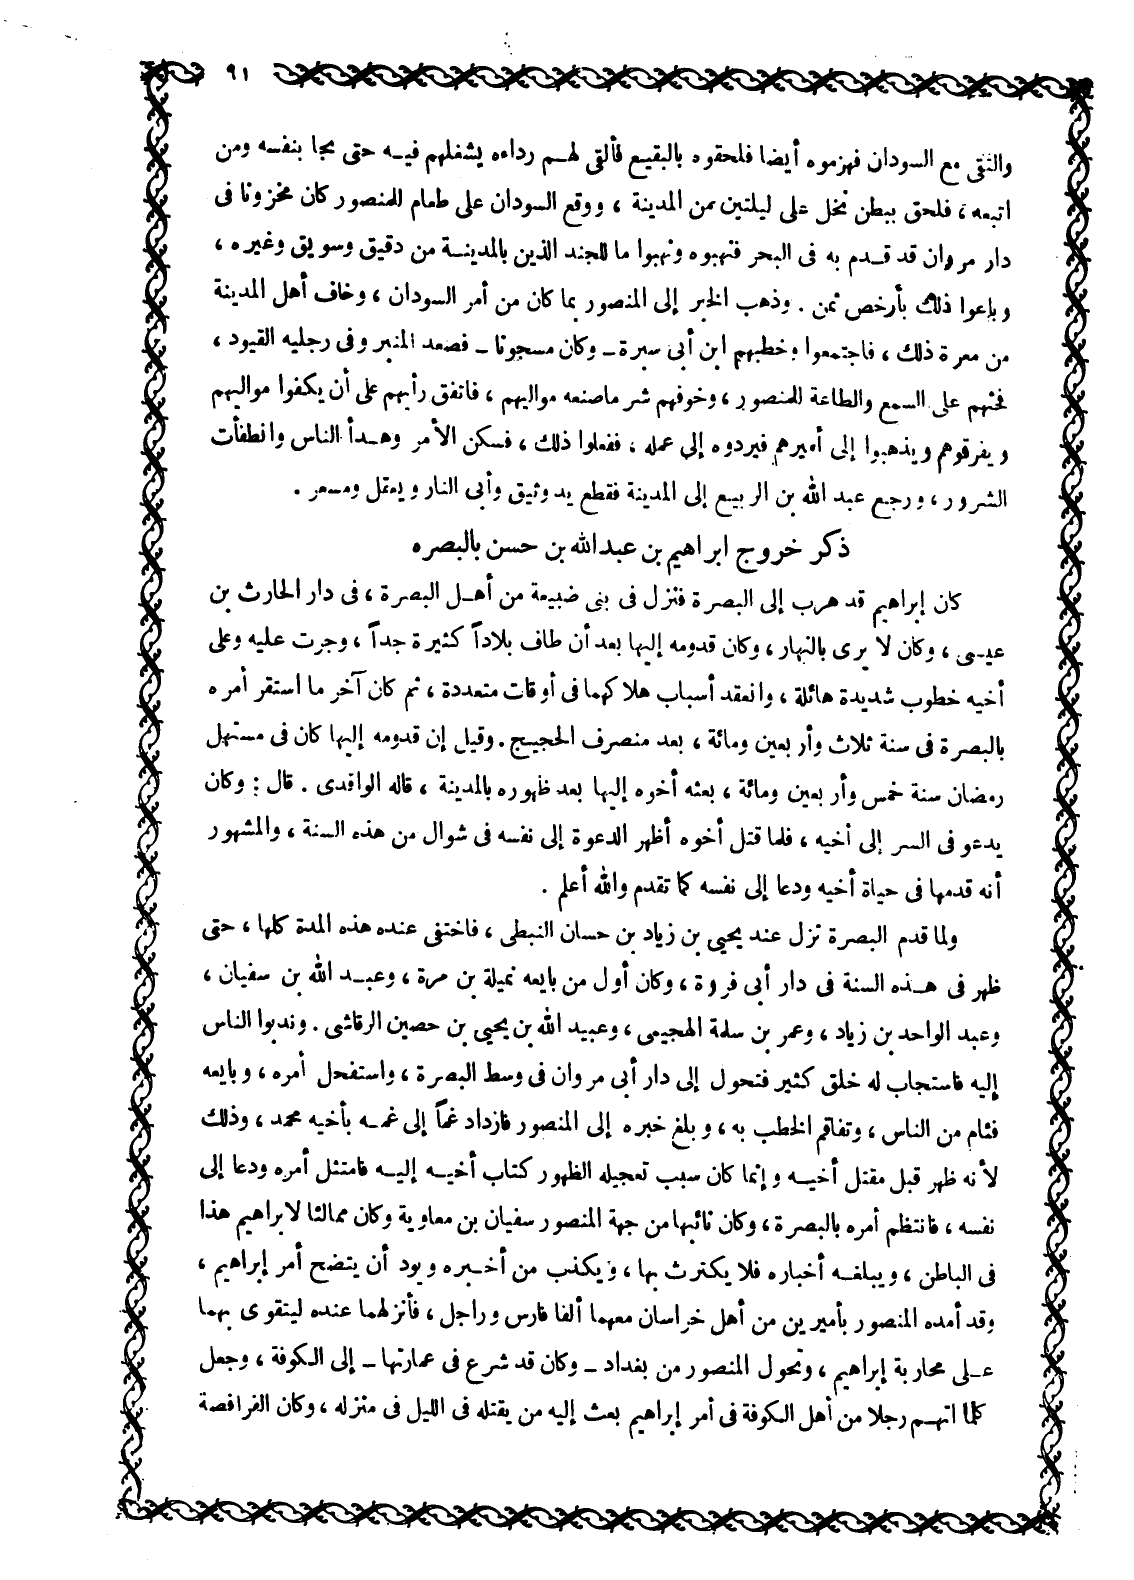 ٩١
والتقى مع السودان فهزموه أيضا فلحقوه بالبقيع فألقى لهم رداءه يشغلهم فيه حتى نجا بنفسه ومن
اتبعه ، فلحق ببطن نخل على ليلتين من المدينة ، ووقع السودان على طعام للمنصور كان مخزونا فى
دار مروان قد قدم به فى البحر فنهبوه ونهبوا ما للجند الذين بالمدينة من دقيق وسويق وغيره ،
وباعوا ذلك بأرخص ثمن . وذهب الخبر إلى المنصور بما كان من أمر السودان ، وخاف أهل المدينة
من معرة ذلك ، فاجتمعوا وخطبهم ابن أبى سبرة ـ وكان مسجونا ـ فصعد المنبر وفى رجليه القيود ،
فحثهم على السمع والطاعة للمنصور ، وخوفهم شر ماصنعه مواليهم ، فاتفق رأيهم على أن يكفوا مواليهم
ويفرقوهم ويذهبوا إلى أميرهم فيردوه إلى عمله ، ففعلوا ذلك ، فسكن الأمر وهدأ الناس وانطفأت
الشرور ، ورجع عبد الله بن الربيع إلى المدينة فقطع يد وثيق وأبى النار ويعقل ومسعر .
ذكر خروج ابراهيم بن عبدالله بن حسن بالبصره
كان إبراهيم قد هرب إلى البصرة فنزل فى بنى ضبيعة من أهل البصرة ، فى دار الحارث بن
عيسى ، وكان لا يرى بالنهار ، وكان قدومه إليها بعد أن طاف بلاداً كثيرة جداً ، وجرت عليه وعلى
أخيه خطوب شديدة هائلة ، وانعقد أسباب هلاكهما فى أوقات متعددة ، ثم كان آخر ما استقر أمره
بالبصرة فى سنة ثلاث وأربعين ومائة ، بعد منصرف الحجيج . وقيل إن قدومه إليها كان فى مستهل
رمضان سنة خمس وأربعين ومائة ، بعثه أخوه إليها بعد ظهوره بالمدينة ، قاله الواقدى . قال : وكان
يدعو فى السر إلى أخيه ، فلما قتل أخوه أظهر الدعوة إلى نفسه فى شوال من هذه السنة ، والمشهور
أنه قدمها فى حياة أخيه ودعا إلى نفسه كما تقدم والله أعلم .
ولما قدم البصرة نزل عند يحيى بن زياد بن حسان النبطى ، فاختفى عنده هذه المدة كلها ، حتى
ظهر فى هذه السنة فى دار أبى فروة ، وكان أول من بايعه نميلة بن مرة ، وعبد الله بن سفيان ،
وعبد الواحد بن زياد ، وعمر بن سلمة الهجيمى ، وعبيد الله بن يحيى بن حصين الرقاشى . وندبوا الناس
إليه فاستجاب له خلق كثير فتحول إلى دار أبى مروان فى وسط البصرة ، واستفحل أمره ، وبايعه
فئام من الناس ، وتفاقم الخطب به ، وبلغ خبره إلى المنصور فازداد غماً إلى غمه بأخيه محمد ، وذلك
لأنه ظهر قبل مقتل أخيه وإنما كان سبب تعجيله الظهور كتاب أخيه إليه فامتثل أمره ودعا إلى
نفسه ، فانتظم أمره بالبصرة ، وكان نائبها من جهة المنصور سفيان بن معاوية وكان ممالئا لابراهيم هذا
فى الباطن ، ويبلغه أخباره فلا يكترث بها ، ويكذب من أخبره ويود أن يتضح أمر إبراهيم ،
وقد أمده المنصور بأميرين من أهل خراسان معهما ألفا فارس وراجل ، فأنزلهما عنده ليتقوى بهما
على محاربة إبراهيم ، وتحول المنصور من بغداد ـ وكان قد شرع فى عمارتها ـ إلى الكوفة ، وجعل
كلما اتهم رجلا من أهل الكوفة فى أمر إبراهيم بعث إليه من يقتله فى الليل فى منزله ، وكان الفرافصة